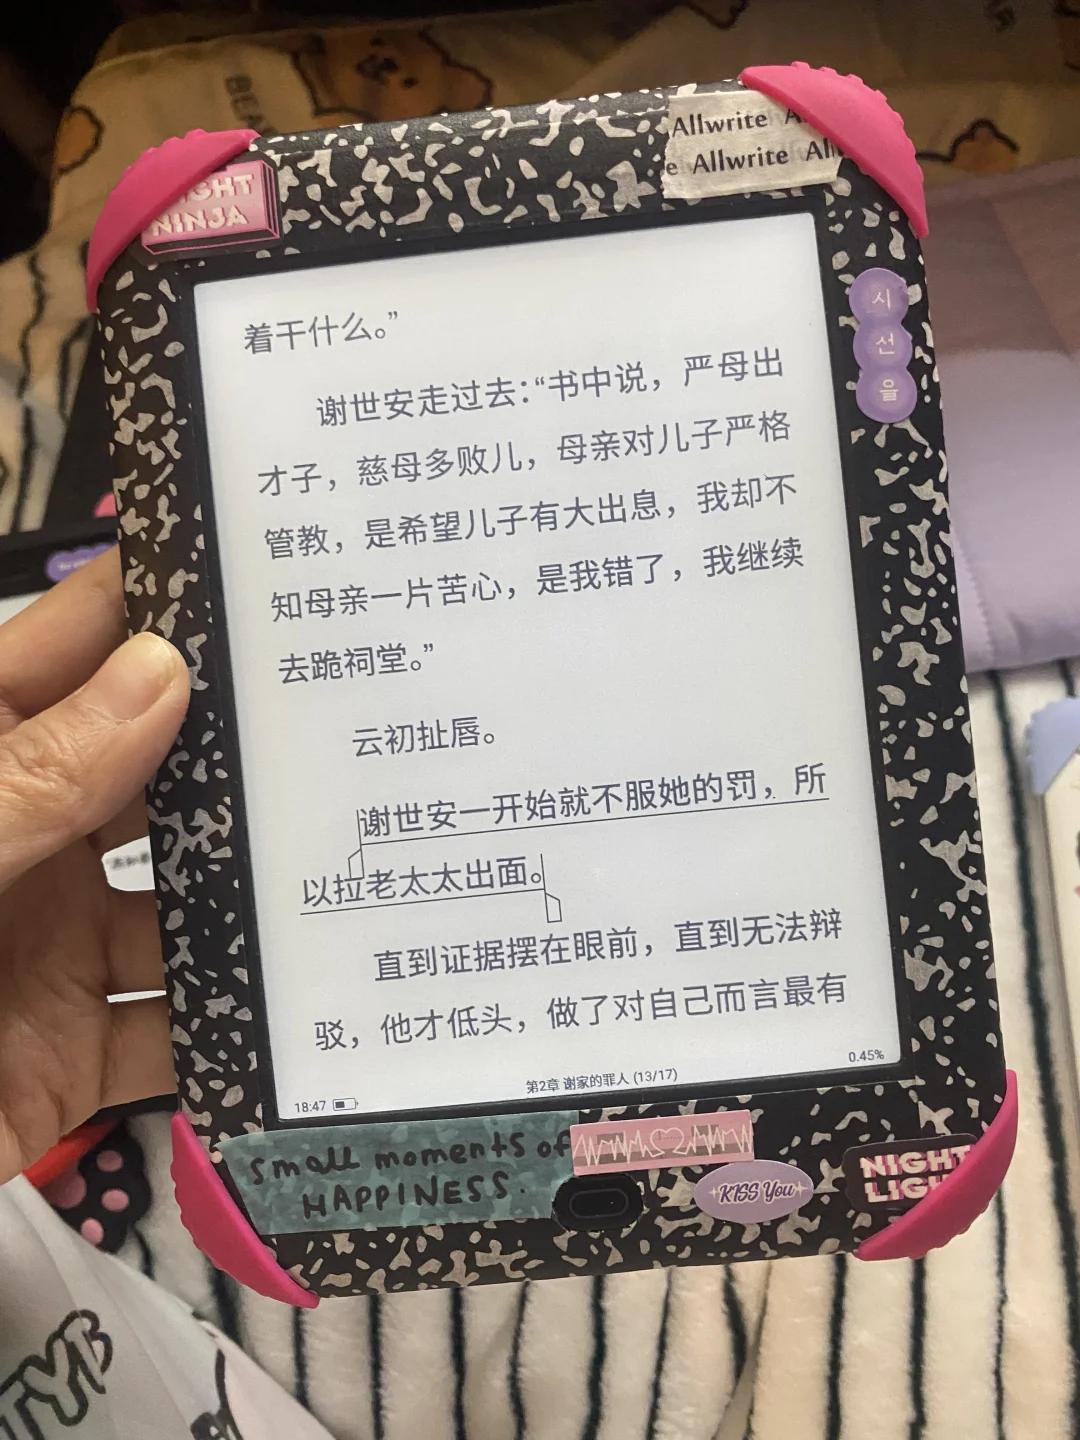 BEA
AR
Allwrite A
e Allwrite All
NINJA
시
선
을
着干什么。”
谢世安走过去：“书中说，严母出
才子，慈母多败儿，母亲对儿子严格
管教，是希望儿子有大出息，我却不
知母亲一片苦心，是我错了，我继续
去跪祠堂。”
云初扯唇。
谢世安一开始就不服她的罚，所
以拉老太太出面。
直到证据摆在眼前，直到无法辩
驳，他才低头，做了对自己而言最有
18:47
第2章 谢家的罪人 (13/17)
0.45%
small moments of
HAPPINESS.
KISS You
NIGHT
LIGH
TYB